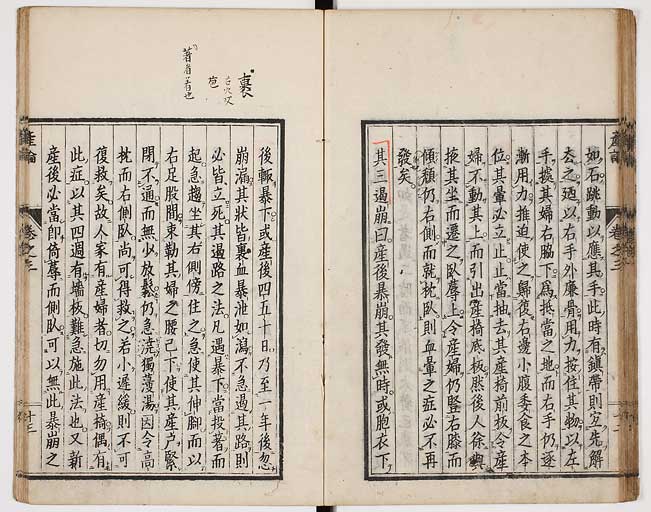 如石跳動以應其手此時有鎮帶則宜先解
去之遂以右手外廉骨用力按住其物以左
手據其婦右脇下爲抵當之地而右手仍逐
漸用力推迫使之歸復右邊小腹委食之本
位其暈必立止止當抽去其産椅前板令産
婦不動其上而引出産椅底板然後人徐輿
掖其坐而遷之臥蓐上令産婦仍竪右膝而
傾頽仍右側而就枕臥則血暈之症必不再
發矣
其三遏崩曰産後暴崩其發無時或胞衣下
裹
苞
著者箸也
後輙暴下或産後四五十日乃至一年後忽
崩漏其狀皆裹血暴泄如瀉不急遏其路則
必皆立死其遏路之法凡遇暴下當投著而
起急趨坐其右側傍住之急使其伸脚而以
右足股間束勒其婦之腰已下使其産戸緊
閉不通而無少放鬆仍急澆獨蓡湯因令高
枕而右側臥尚可得救之若小遲緩則不可
復救矣故人家有産婦者切勿用産椅偶有
此症以其四週有墻板難急施此法也又新
産後必當即倚蓐而側臥可以無此暴崩之
産論
卷之三
十三